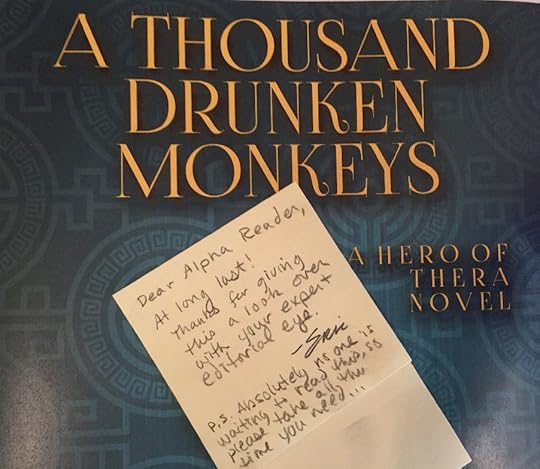 A THOUSAND
DRUNKEN
MONKEYS
A HERO OF
THERA
NOVEL
Dear Alpha Reader,
At long last!
Thanks for giving
this a look over
with your expert
editorial eye.
-Eric
P.S. Absolutely no one is
waiting to read this, so
please take all the
time you need...